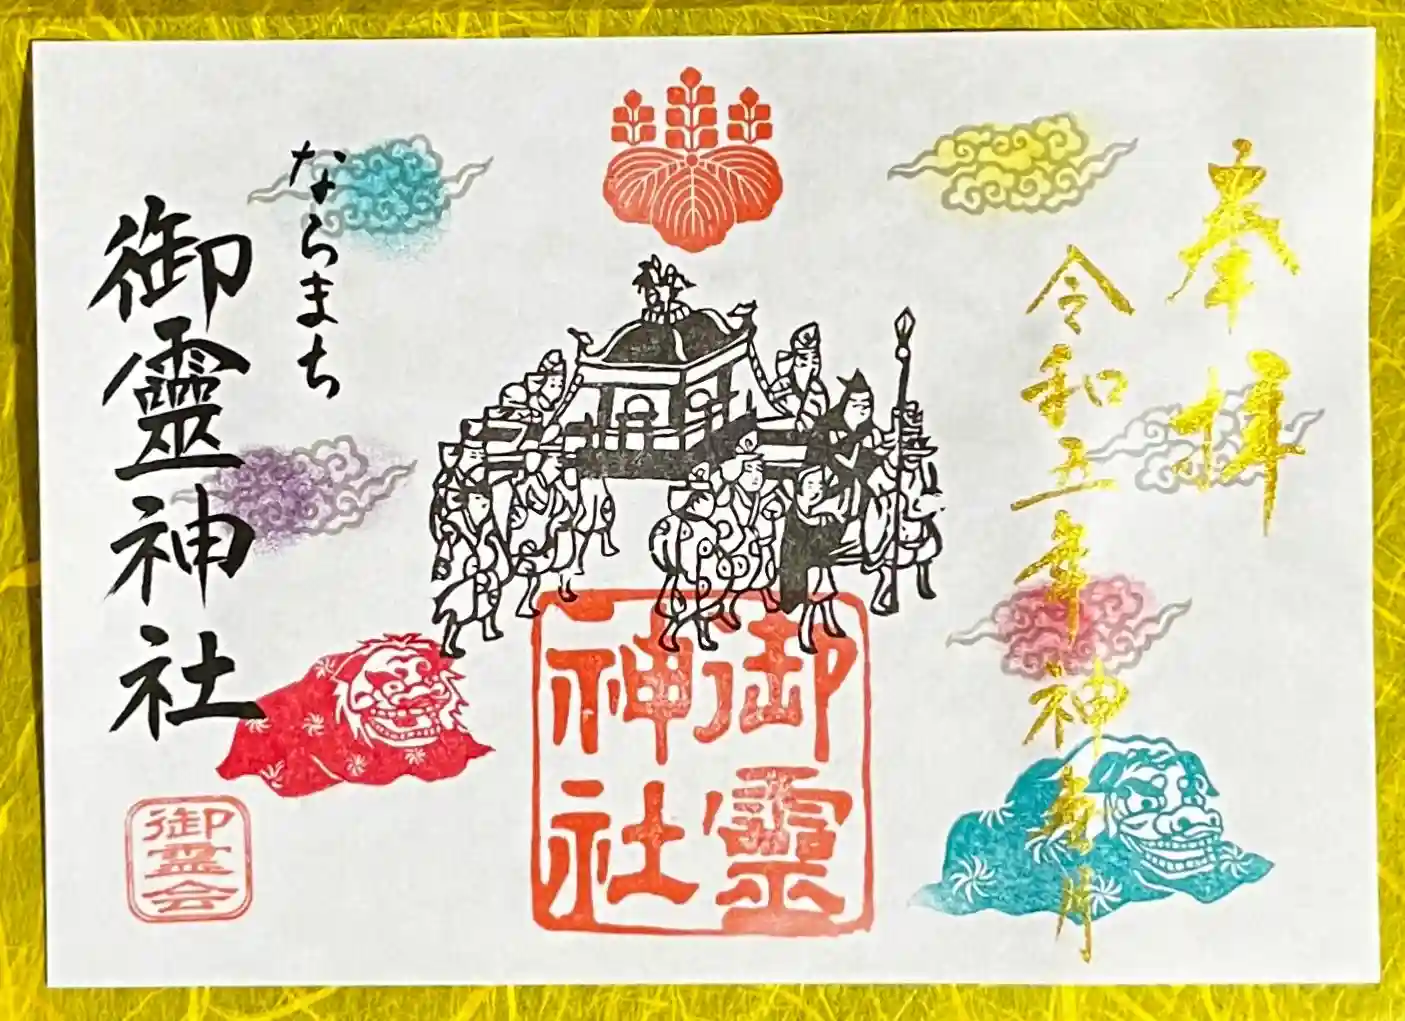 奉拝
令和五年神無月
御靈
神社
ならまち
御靈神社
御霊会